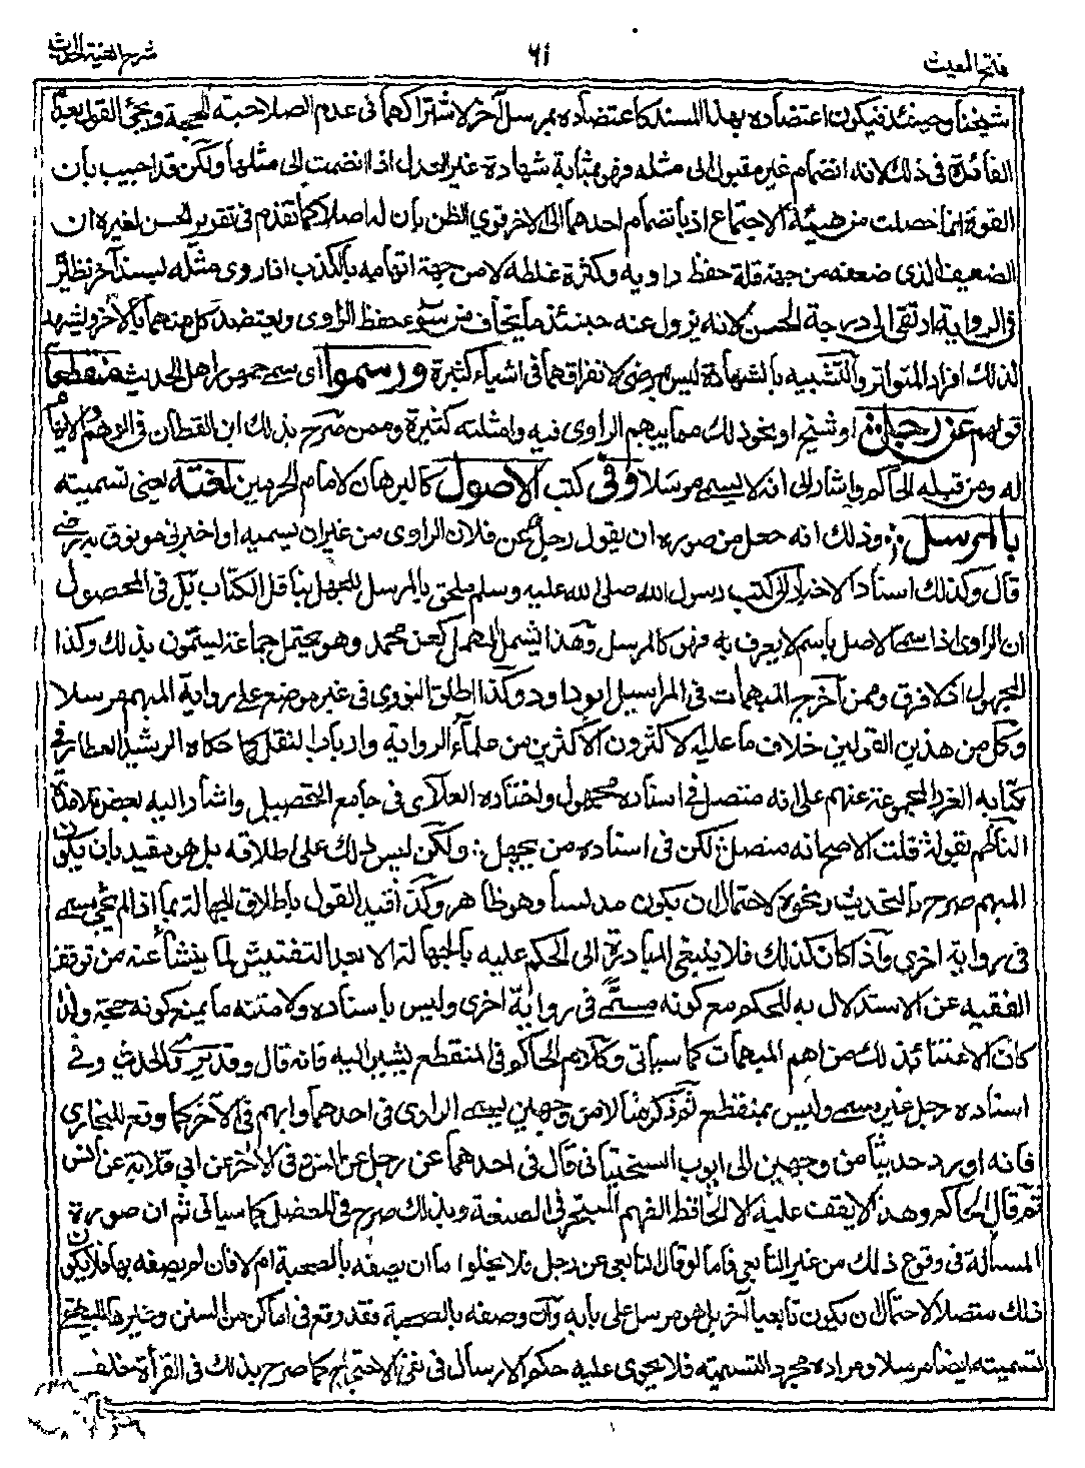 فتح المغيث
٦١
شرح الفية الحديث
شيخنا وحينئذ فيكون اعتضاده بهذا المسند كاعتضاده بمرسل آخر لاشتراكهما فى عدم الصلاحية للحجية ويجئ القول بعدم
الفائدة فى ذلك لانه انضمام غير مقبول الى مثله فهو بمثابة شهادة غير العدل اذا انضمت الى مثلها ولكن قد اجيب بان
القوة انما حصلت من هيئة الاجتماع اذ بانضمام احدهما الى الاخر قوي الظن بان له اصلا كما تقدم فى تقرير الحسن لغيره ان
الضعيف الذى ضعفه من جهة قلة حفظ راويه وكثرة غلطه لا من جهة اتهامه بالكذب اذا روى مثله بسند آخر نظيره
فى الرواية ارتقى الى درجة الحسن لانه يزول عنه حينئذ ما يخاف من سوء حفظ الراوى ويعتضد كل منهما بالاخر وليشهد
لذلك افراد المتواتر والتشبيه بالشهادة ليس بمرضى لافتراقهما فى اشياء كثيرة ورسموا اى سمى جمهور اهل الحديث منقطعا
قولهم عن رجل او شيخ او نحو ذلك مما يبهم الراوى فيه وامثلته كثيرة وممن صرح بذلك ابن القطان فى الوهم والايهام
له ومن قبله الحاكم واشار الى انه لا يسمى مرسلا وفى كتب الاصول كالبرهان لامام الحرمين نعته يعنى تسميته
بالمرسل وذلك انه جعل من صوره ان يقول رجل عن فلان الراوى من غير ان يسميه او اخبرنى موثوق به رضى
قال وكذلك اسناد الاخبار الى كتب رسول الله صلى الله عليه وسلم ملحق بالمرسل للجهل بناقل الكتاب بل فى المحصول
ان الراوى اذا سمى الاصل باسم لا يعرف به فهو كالمرسل وهذا يشمل المهمل كعن محمد وهو يحتمل جماعة يسمون بذلك وكذا
المجهول اذ لا فرق وممن اخرج المبهمات فى المراسيل ابوداود وكذا اطلق النووى فى غير موضع على رواية المبهم مرسلا
وكل من هذين القولين خلاف ما عليه الاكثرون الاكثرين من علماء الرواية وارباب النقل كما حكاه الرشيد العطار فى
كتابه الغرر المجموعة عنهم على انه متصل فى اسناده مجهول واختاره العلائى فى جامع التحصيل واشار اليه بعض تلامذة
الناظم بقوله قلت الاصح انه متصل لكن فى اسناده من يجهل ولكن ليس ذلك على اطلاقه بل هو مقيد بان يكون
المبهم صرح بالتحديث ونحوه لاحتمال ان يكون مدلسا وهو ظاهر وكذا قيد القول باطلاق الجهالة بما اذا لم يجئ مسمى
فى رواية اخرى واذا كان كذلك فلا ينبغى المبادرة الى الحكم عليه بالجهالة الا بعد التفتيش لما ينشأ عنه من توقف
الفقيه عن الاستدلال به للحكم مع كونه مسمّى فى رواية اخرى وليس باسناده ولا متنه ما يمنع كونه حجة ولذا
كان الاعتناء بذلك من اهم المبهمات كما سيأتى وكلام الحاكم فى المنقطع يشير اليه فانه قال وقد يروى الحديث وفى
اسناده رجل غير مسمى وليس بمنقطع ثم ذكر مثالا من وجهين يسمى الراوى فى احدهما وابهم فى الآخر كما وقع للبخارى
فانه اورد حديثا من وجهين الى ايوب السختيانى قال فى احدهما عن رجل عن انس وفى الاخر عن ابى قلابة عن انس
ثم قال الحاكم وهذا لا يقف عليه الا الحافظ الفهم المتبحر فى الصنعة وبذلك صرح فى المعضل كما سيأتى ثم ان صورة
المسألة فى وقوع ذلك من غير التابعى فاما لو قال التابعى عن رجل فلا يخلوا ما ان يصفه بالصحبة ام لا فان لم يصفه بها فلا يكون
ذلك متصلا لاحتمال ان يكون تابعيا آخر بل هو مرسل على بابه وان وصفه بالصحبة فقد وقع فى اماكن من السنن وغيرها للبيهقى
تسميته ايضا مرسلا ومراده مجرد التسمية فلا يجرى عليه حكم الارسال فى نفى الاحتجاج كما صرح بذلك فى القراءة خلف